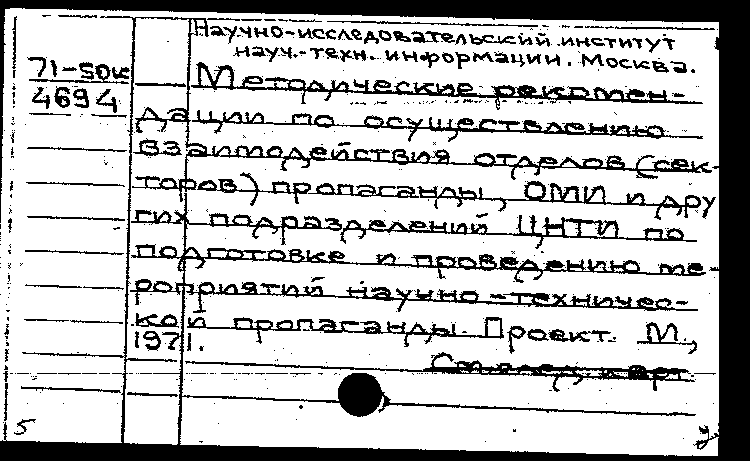 Научно-исследовательский институт
науч.-техн. информации. Москва.
71-50к
4694
Методические рекомен-
дации по осуществлению
взаимодействия отделов (сек-
торов) пропаганды, ОМИ и дру
гих подразделений ЦНТИ по
подготовке и проведению ме-
роприятий научно-техничес-
кой пропаганды. Проект. М.,
1971.
См. след. карт.
5